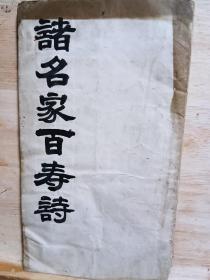 諸名家百寿詩